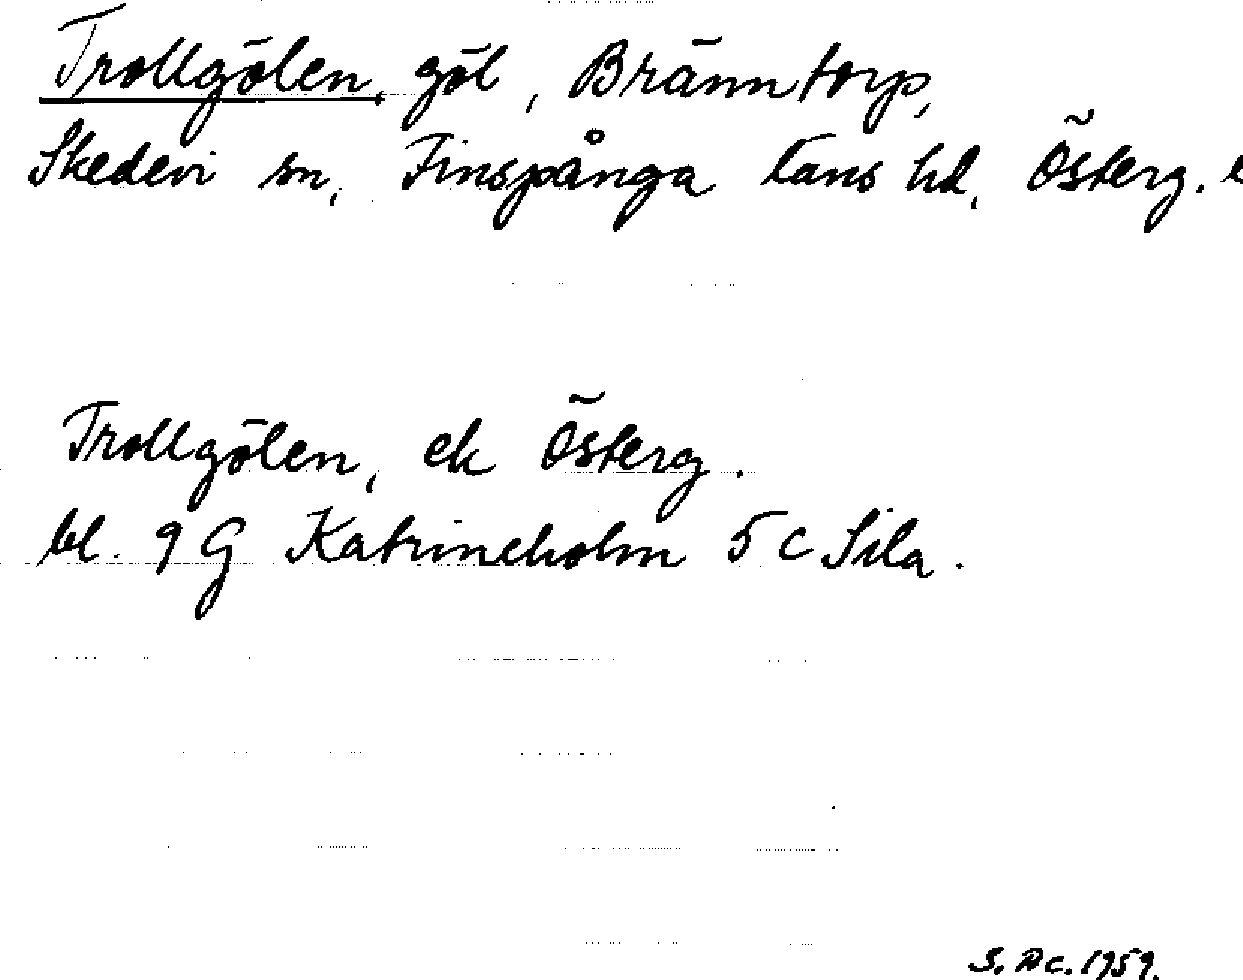 Trollgölen, göl, Bränntorp,
Skedevi sn, Finspånga läns hd, Österg.
Trollgölen, ek Österg.
bl. 9 G Katrineholm 5 c Sila.
S. Ac. 1959.